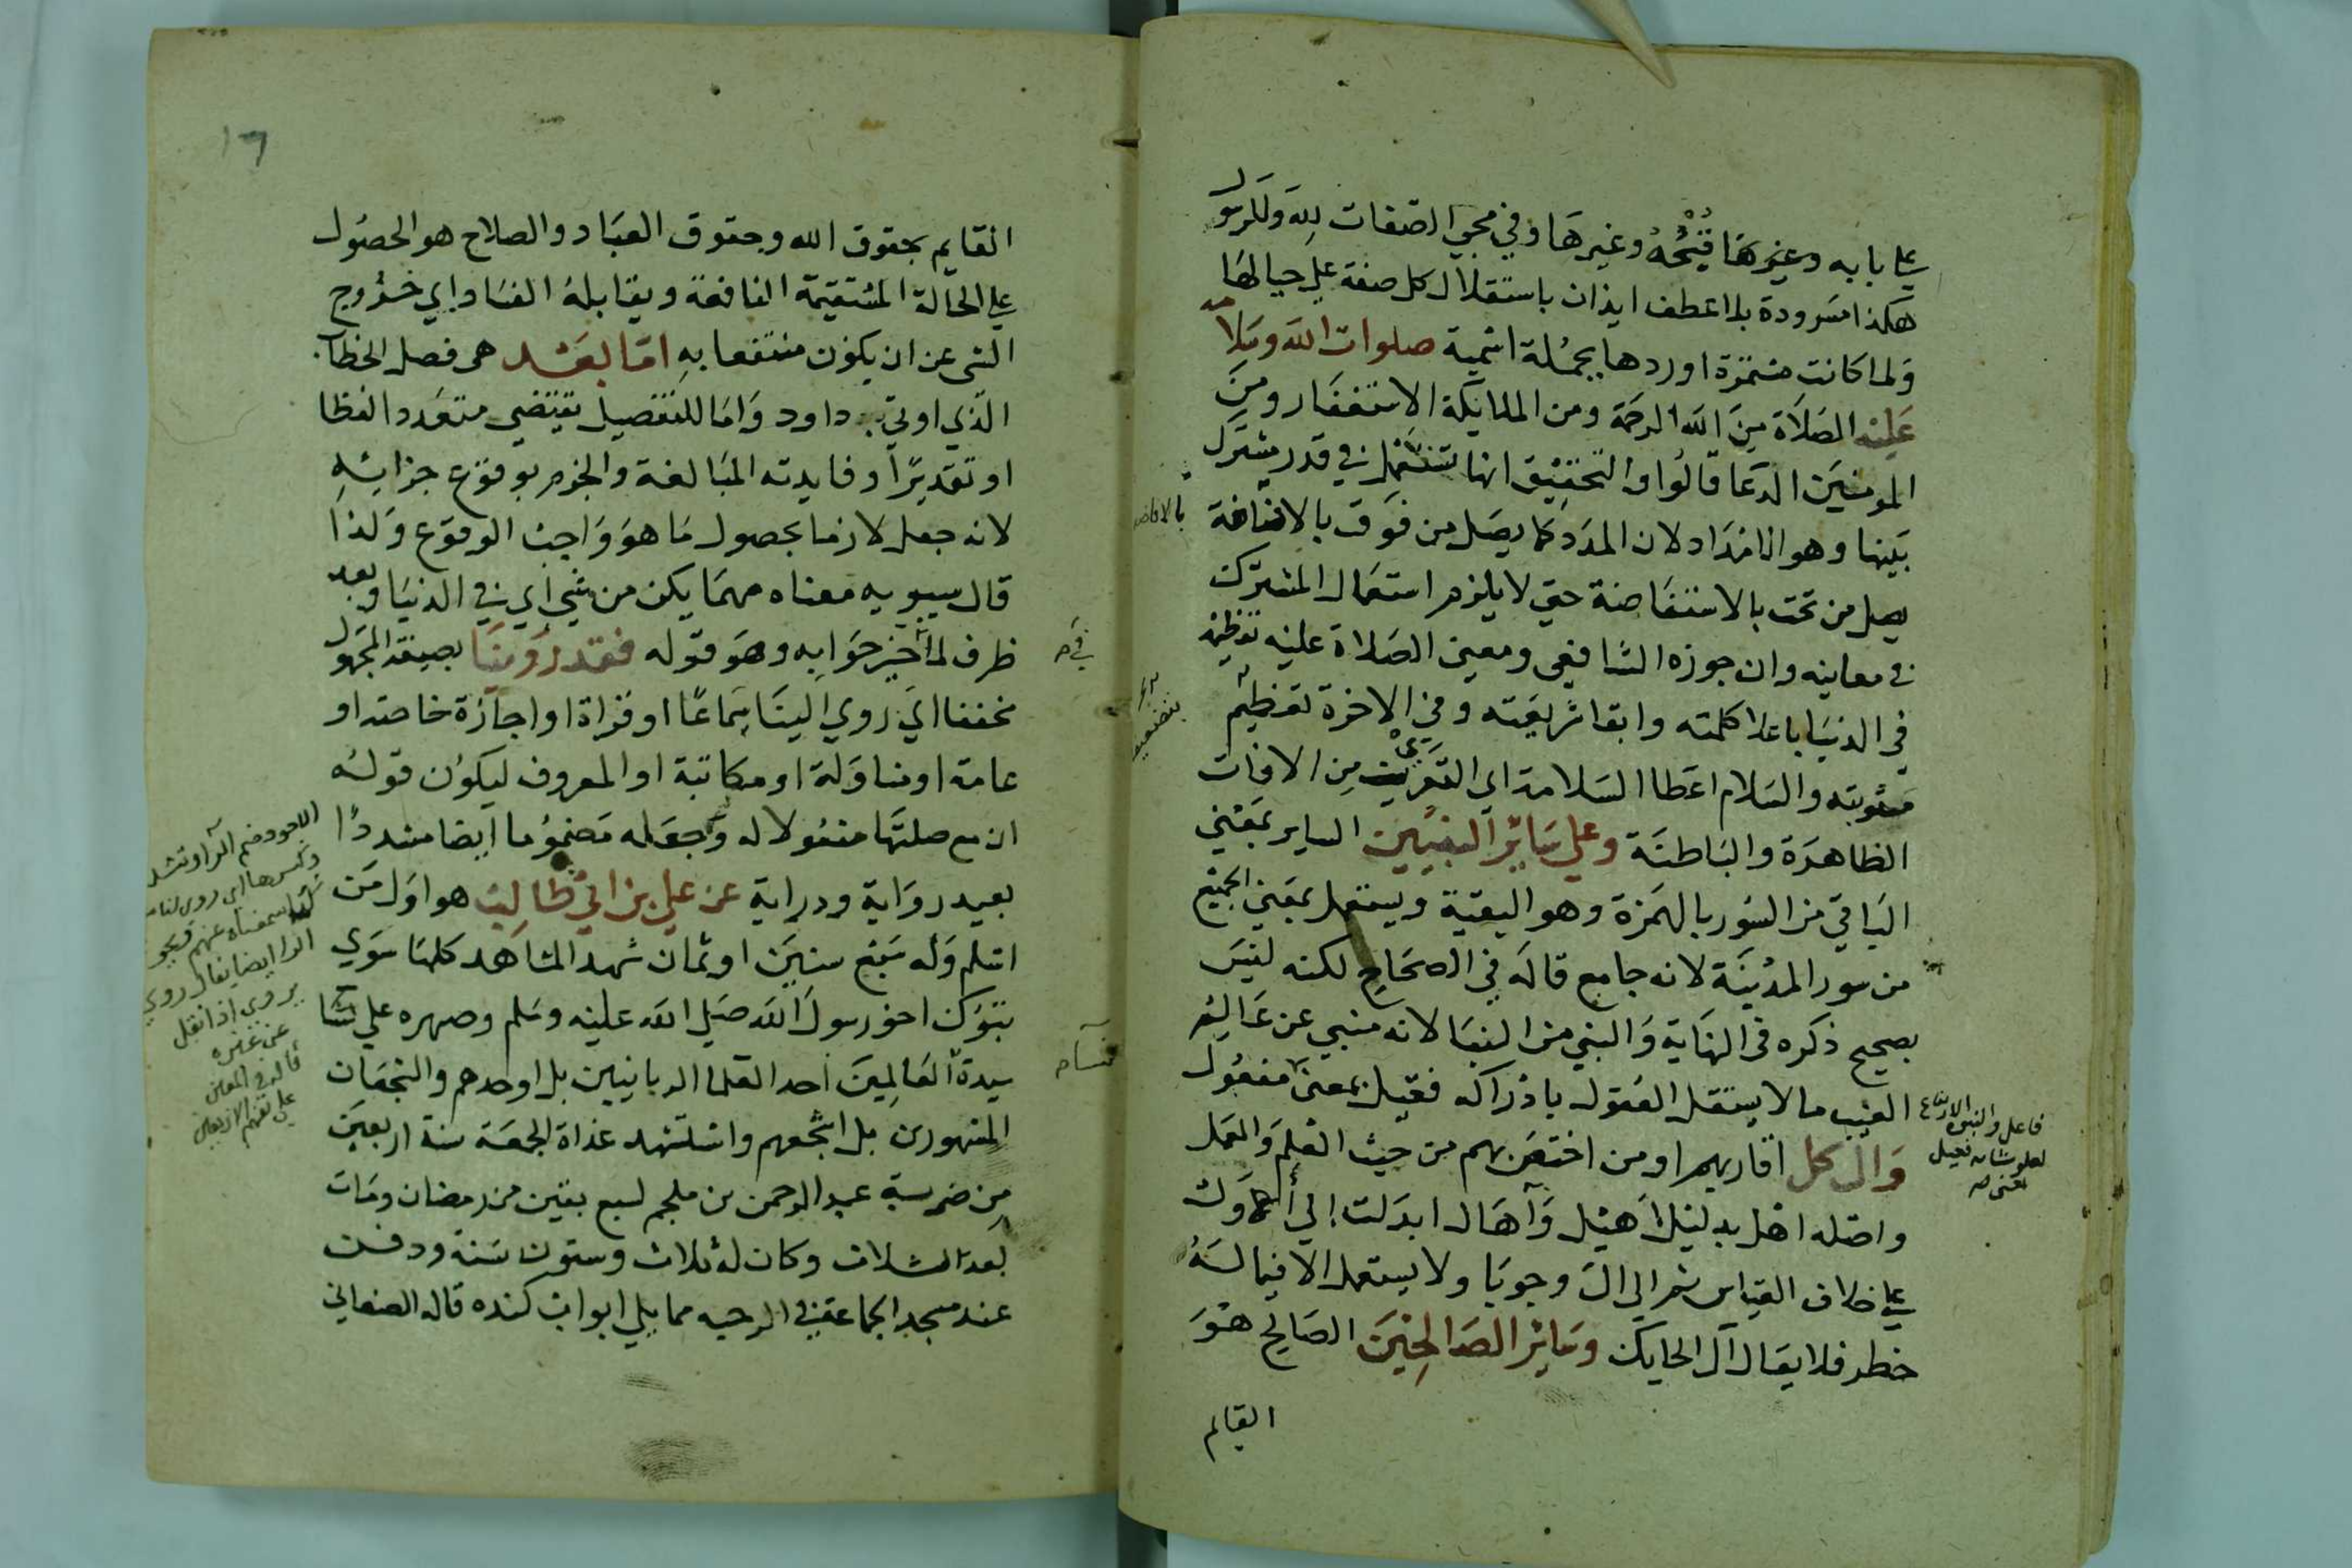 على بابه وغيرها وفي مجي الصفات لله وللرسول
هكذا مسرودة بلا عطف ايذان باستقلال كل صفة على حيالها
ولما كانت مستمرة اوردها بجملة اسمية صلوات الله وسلامه
عليه الصلاة من الله الرحمة ومن الملايكة الاستغفار ومن
المومنين الدعا قالوا والتحقيق انها تستعمل في قدر مشترك
بينها وهو الامداد لان المدد كما يصل من فوق بالافاضة
يصل من تحت بالاستفاضة حتى لا يلزم استعمال المشترك
في معانيه وان جوزه الشافعي ومعنى الصلاة عليه تعظيمه
في الدنيا باعلا كلمته وابقا شريعته وفي الاخرة تعظيم
مثوبته والسلام اعطا السلامة اي من الافات
الظاهرة والباطنة وعلى سائر النبيين الساير بمعنى
الباقي من السور بالهمزة وهو البقية ويستعمل بمعنى الجميع
من سور المدينة لانه جامع قاله في الصحاح لكنه ليس
بصحيح ذكره في النهاية والنبي من النبا لانه منبي عن عالم
الغيب ما لا يستقل العقول بادراكه فعيل بمعنى مفعول
وال كل اقاربهم او من اختص بهم من حيث العلم والعمل
واصله اهل بدليل اهيل وآهال ابدلت الى
على خلاف القياس ثم الى ال وجوبا ولا يستعمل الا فيما له
خطر فلا يقال آل الحايك وسائر الصالحين الصالح هو
القايم
بالافاضة
فاعل
لعلو شانه فعيل
١٦
القايم بحقوق الله وحقوق العباد والصلاح هو الحصول
على الحالة المستقيمة النافعة ويقابله الفساد اي خروج
الشي عن ان يكون منتفعا به اما بعد هي فصل الخطاب
الذي اوتي داود واما للتفصيل يقتضي متعدد الفظا
او تقديرا وفايدته المبالغة والجزم بوقوع جزائه
لانه جعل لازما بحصول ما هو واجب الوقوع ولذا
قال سيبويه معناه مهما يكن من شي اي في الدنيا وبعد
ظرف جوابه وهو قوله فقد روينا بصيغة المجهول
مخففا اي روي الينا سماعا او قراة او اجازة خاصة او
عامة او مناولة او مكاتبة او المعروف ليكون قوله
ان مع صلتها مفعولا له وجعله مضموما ايضا مشددا
بعيد رواية ودراية عن علي بن ابي طالب هو اول من
اسلم وله سبع سنين او ثمان شهد المشاهد كلها سوى
تبوك اخو رسول الله صلى الله عليه وسلم وصهره على
سيدة العالمين احد العلما الربانيين بل اوحدهم والشجعان
المشهورين بل اشجعهم واستشهد غداة الجمعة سنة اربعين
من ضربة عبد الرحمن بن ملجم لسبع بقين من رمضان ومات
بعد الثلاث وكان له ثلاث وستون سنة ودفن
عند مسجد الجماعة في الرحبه مما يلي ابواب كنده قاله
الاجود ضم الراو تشديد
وكسرها اي روى لنا
سمعناه عنهم
ايضا يقال روى
يروي اذا نقل
عن غيره